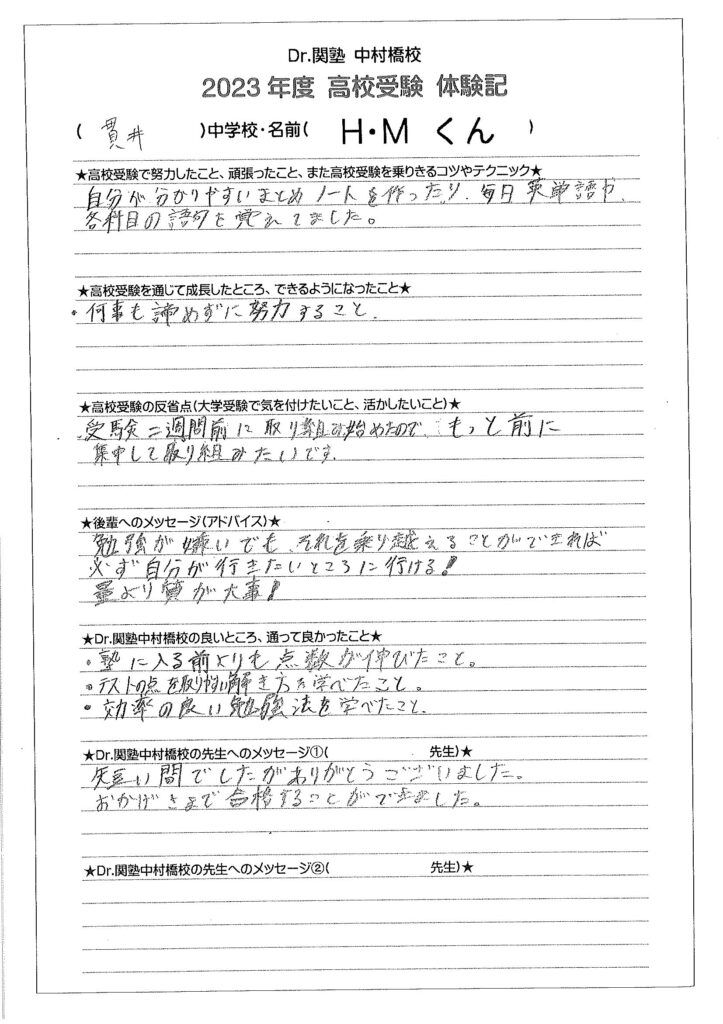 Dr.関塾 中村橋校
2023年度 高校受験 体験記
( 貫井 )中学校・名前( H・M くん )
★高校受験で努力したこと、頑張ったこと、また高校受験を乗りきるコツやテクニック★
自分が分かりやすいまとめノートを作ったり、毎日英単語や、
各科目の語句を覚えてました。
★高校受験を通じて成長したところ、できるようになったこと★
・何事も諦めずに努力すること。
★高校受験の反省点(大学受験で気を付けたいこと、活かしたいこと)★
受験二週間前に取り組み始めたので、もっと前に
集中して取り組みたいです。
★後輩へのメッセージ(アドバイス)★
勉強が嫌いでも、それを乗り越えることができれば
必ず自分が行きたいところに行ける!
量より質が大事!
★Dr.関塾中村橋校の良いところ、通って良かったこと★
・塾に入る前よりも点数が伸びたこと。
・テストの点を取りやすい解き方を学べたこと。
・効率の良い勉強法を学べたこと。
★Dr.関塾中村橋校の先生へのメッセージ①( 先生)★
短い間でしたがありがとうございました。
おかげさまで合格することができました。
★Dr.関塾中村橋校の先生へのメッセージ②( 先生)★